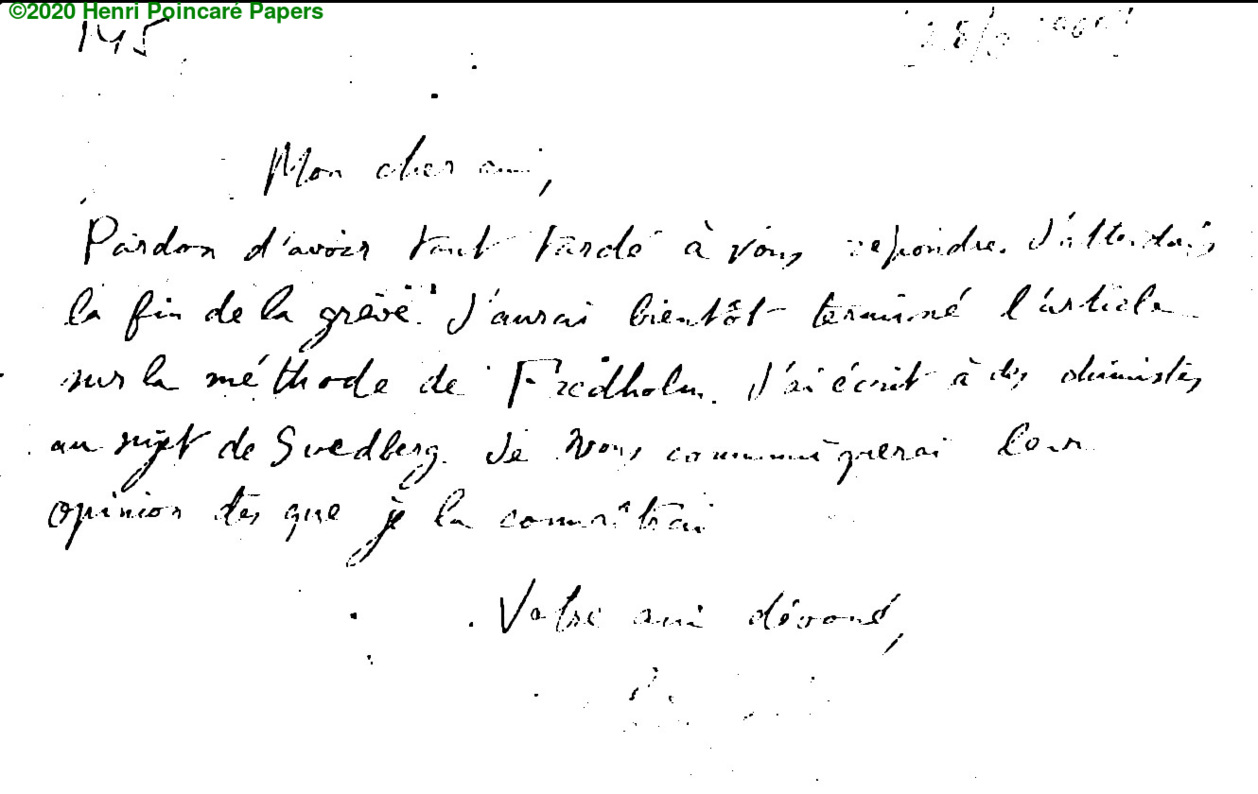 ©2020 Henri Poincaré Papers
145
Mon cher ami,
Pardon d'avoir tant tardé à vous repondre. J'attendais
la fin de la grève. J'aurai bientôt terminé l'article
sur la méthode de Fredholm. J'ai écrit à des chimistes
au sujet de Svedberg. Je vous communiquerai leur
opinion dès que je la connaîtrai
Votre ami dévoué,